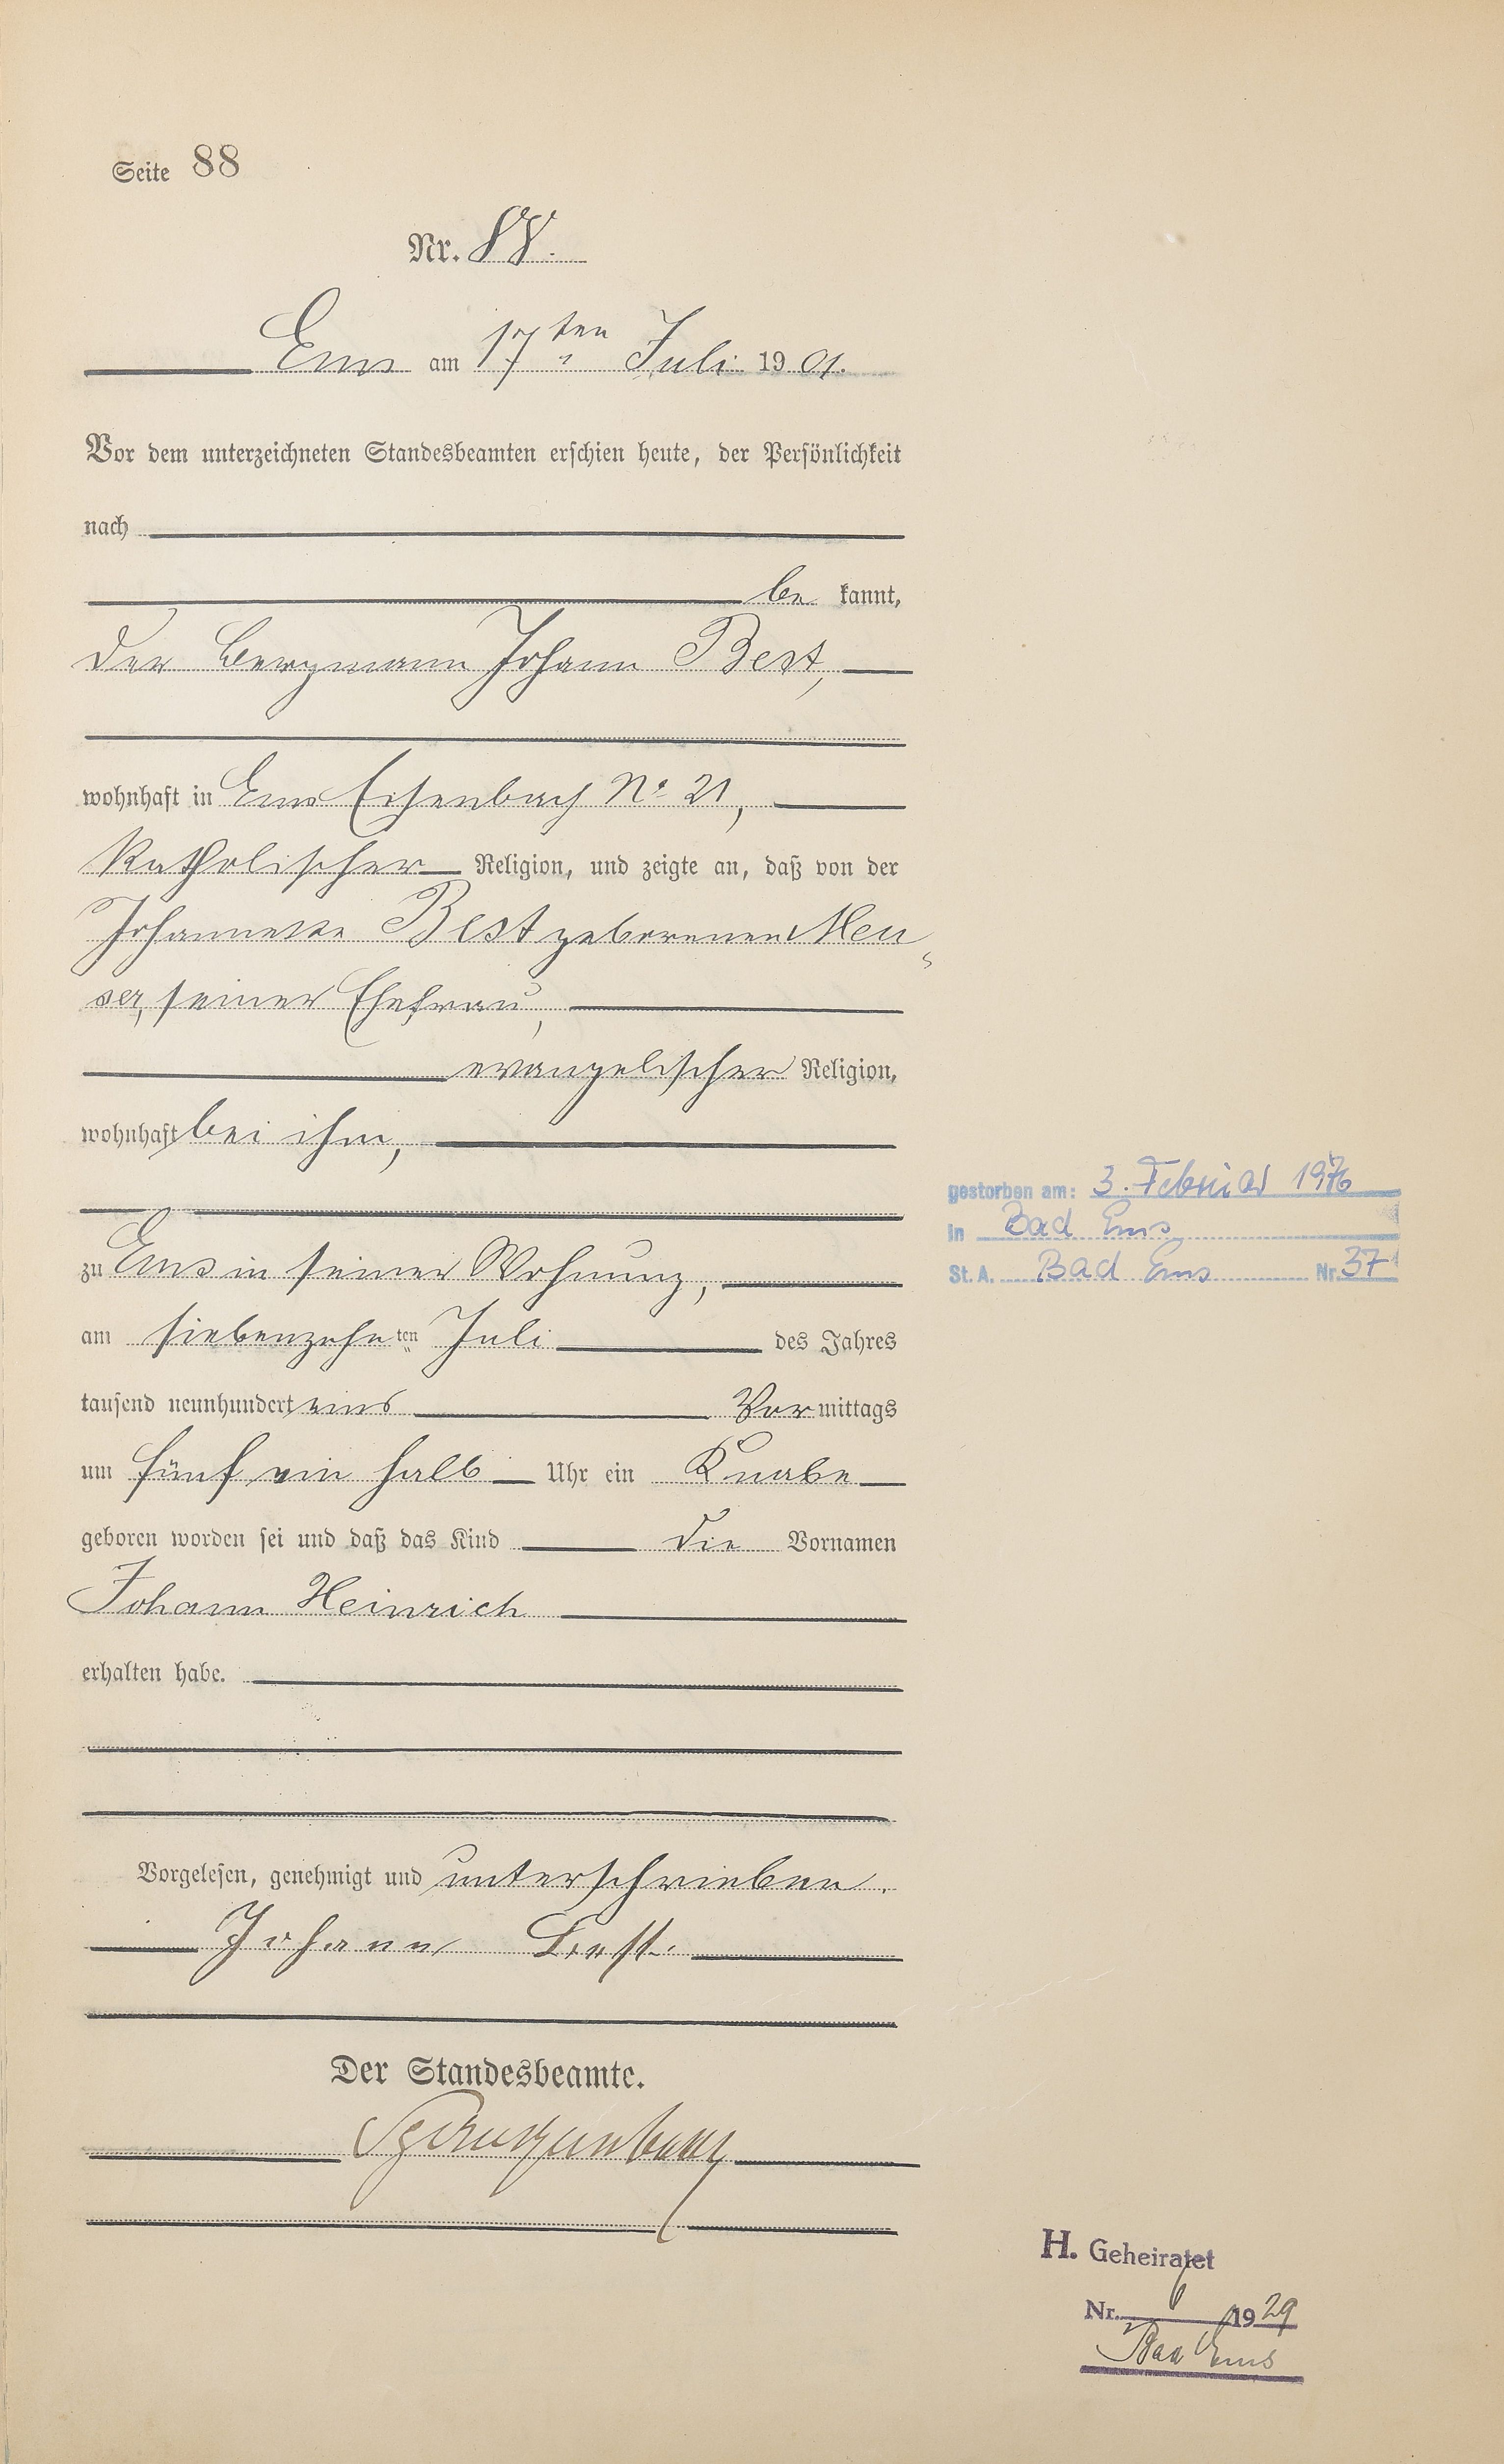 Seite 88
Nr. 88.
Ems am 17ten Juli 1901.
Vor dem unterzeichneten Standesbeamten erschien heute, der Persönlichkeit
nach
be kannt,
der Bergmann Johann Best,
wohnhaft in Ems Eisenbach No 21,
katholischer Religion, und zeigte an, daß von der
Johannette Best geborenen Meu-
ser, seiner Ehefrau,
evangelischer Religion,
wohnhaft bei ihm,
zu Ems in seiner Wohnung,
am siebenzehnten Juli des Jahres
tausend neunhundert eins Vormittags
um fünf ein halb Uhr ein Knabe
geboren worden sei und daß das Kind die Vornamen
Johann Heinrich
erhalten habe.
Vorgelesen, genehmigt und unterschrieben.
Johann Best.
Der Standesbeamte.
gestorben am: 3. Februar 1976
in Bad Ems
St. A. Bad Ems Nr. 37
H. Geheiratet
Nr. 6 1929
Bad Ems